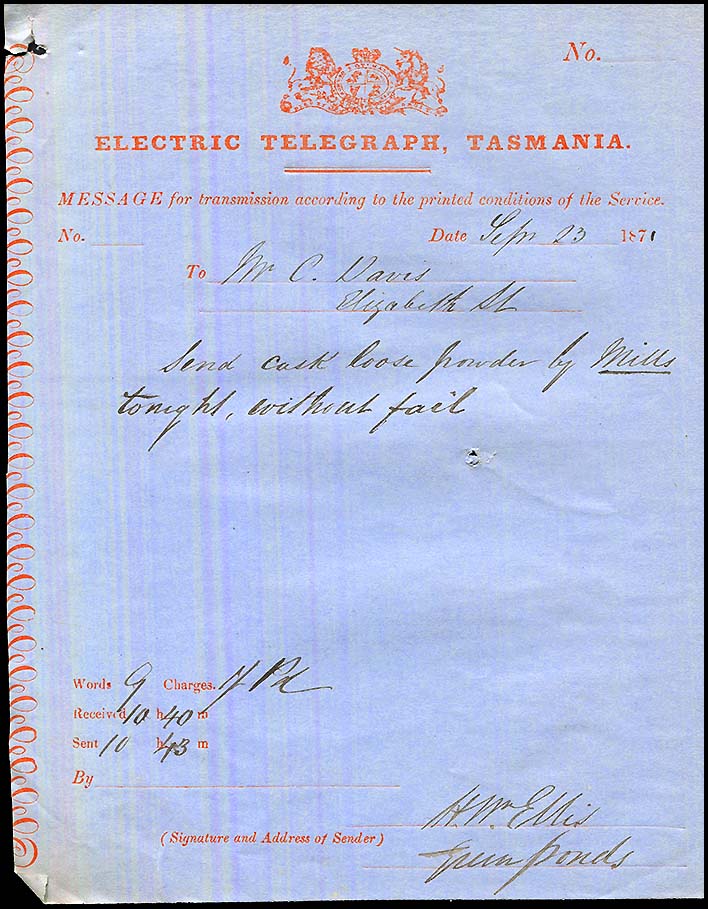 No.
ELECTRIC TELEGRAPH, TASMANIA.
MESSAGE for transmission according to the printed conditions of the Service.
No. Date Sepr 23 1871
To Mr C. Davis
Elizabeth St
Send cask loose powder by Mills
tonight, without fail
Words 9 Charges. 1/ Pd
Received 10 h 40 m
Sent 10 h 43 m
By
H. Wm Ellis
(Signature and Address of Sender)
Green Ponds